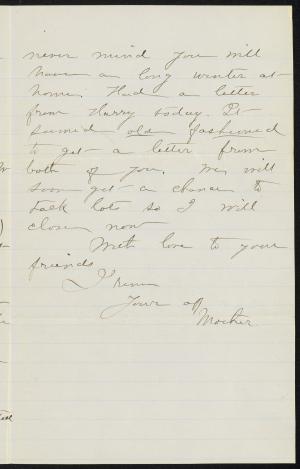 never mind you will
have a long winter at
home. Had a letter
from Harry today. It
seemed old fashioned
to get a letter from
both of you. We will
soon get a chance to
talk lots so I will
close now
With love to your
friends
I remain
Your aff
Mother